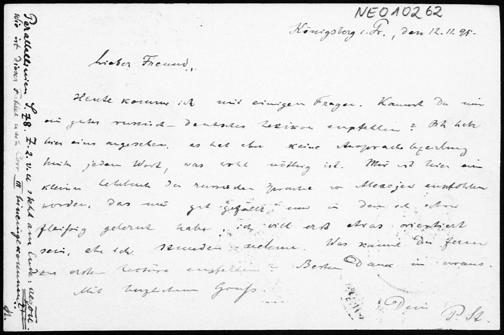 NEO10262
Königsberg i. Pr., den 12.11.95.
Lieber Freund,
Heute komme ich mit einigen Fragen. Kannst Du mir
ein gutes russisch-deutsches Lexikon empfehlen? Ich habe
hier eins angesehen, es hat aber keine Aussprachbezeichnung
hinter jedem Wort, was wohl nöthig ist. Mir ist hier ein
kleines Lehrbuch der russischen Sprache v. empfohlen
worden, das mir gut gefällt und in dem ich schon
fleissig gelernt habe; ich will erst etwas orientirt
sein, ehe ich Stunden nehme. Was kannst Du ferner
zur ersten Lectüre empfehlen? Besten Dank im voraus.
Mit herzlichem Gruss
Dein P. St.
Parallellinien S. 78 Z. 2 v. u. steht am Ende:
Wie ist dieser Fehler nach Corr. III hineingekommen?